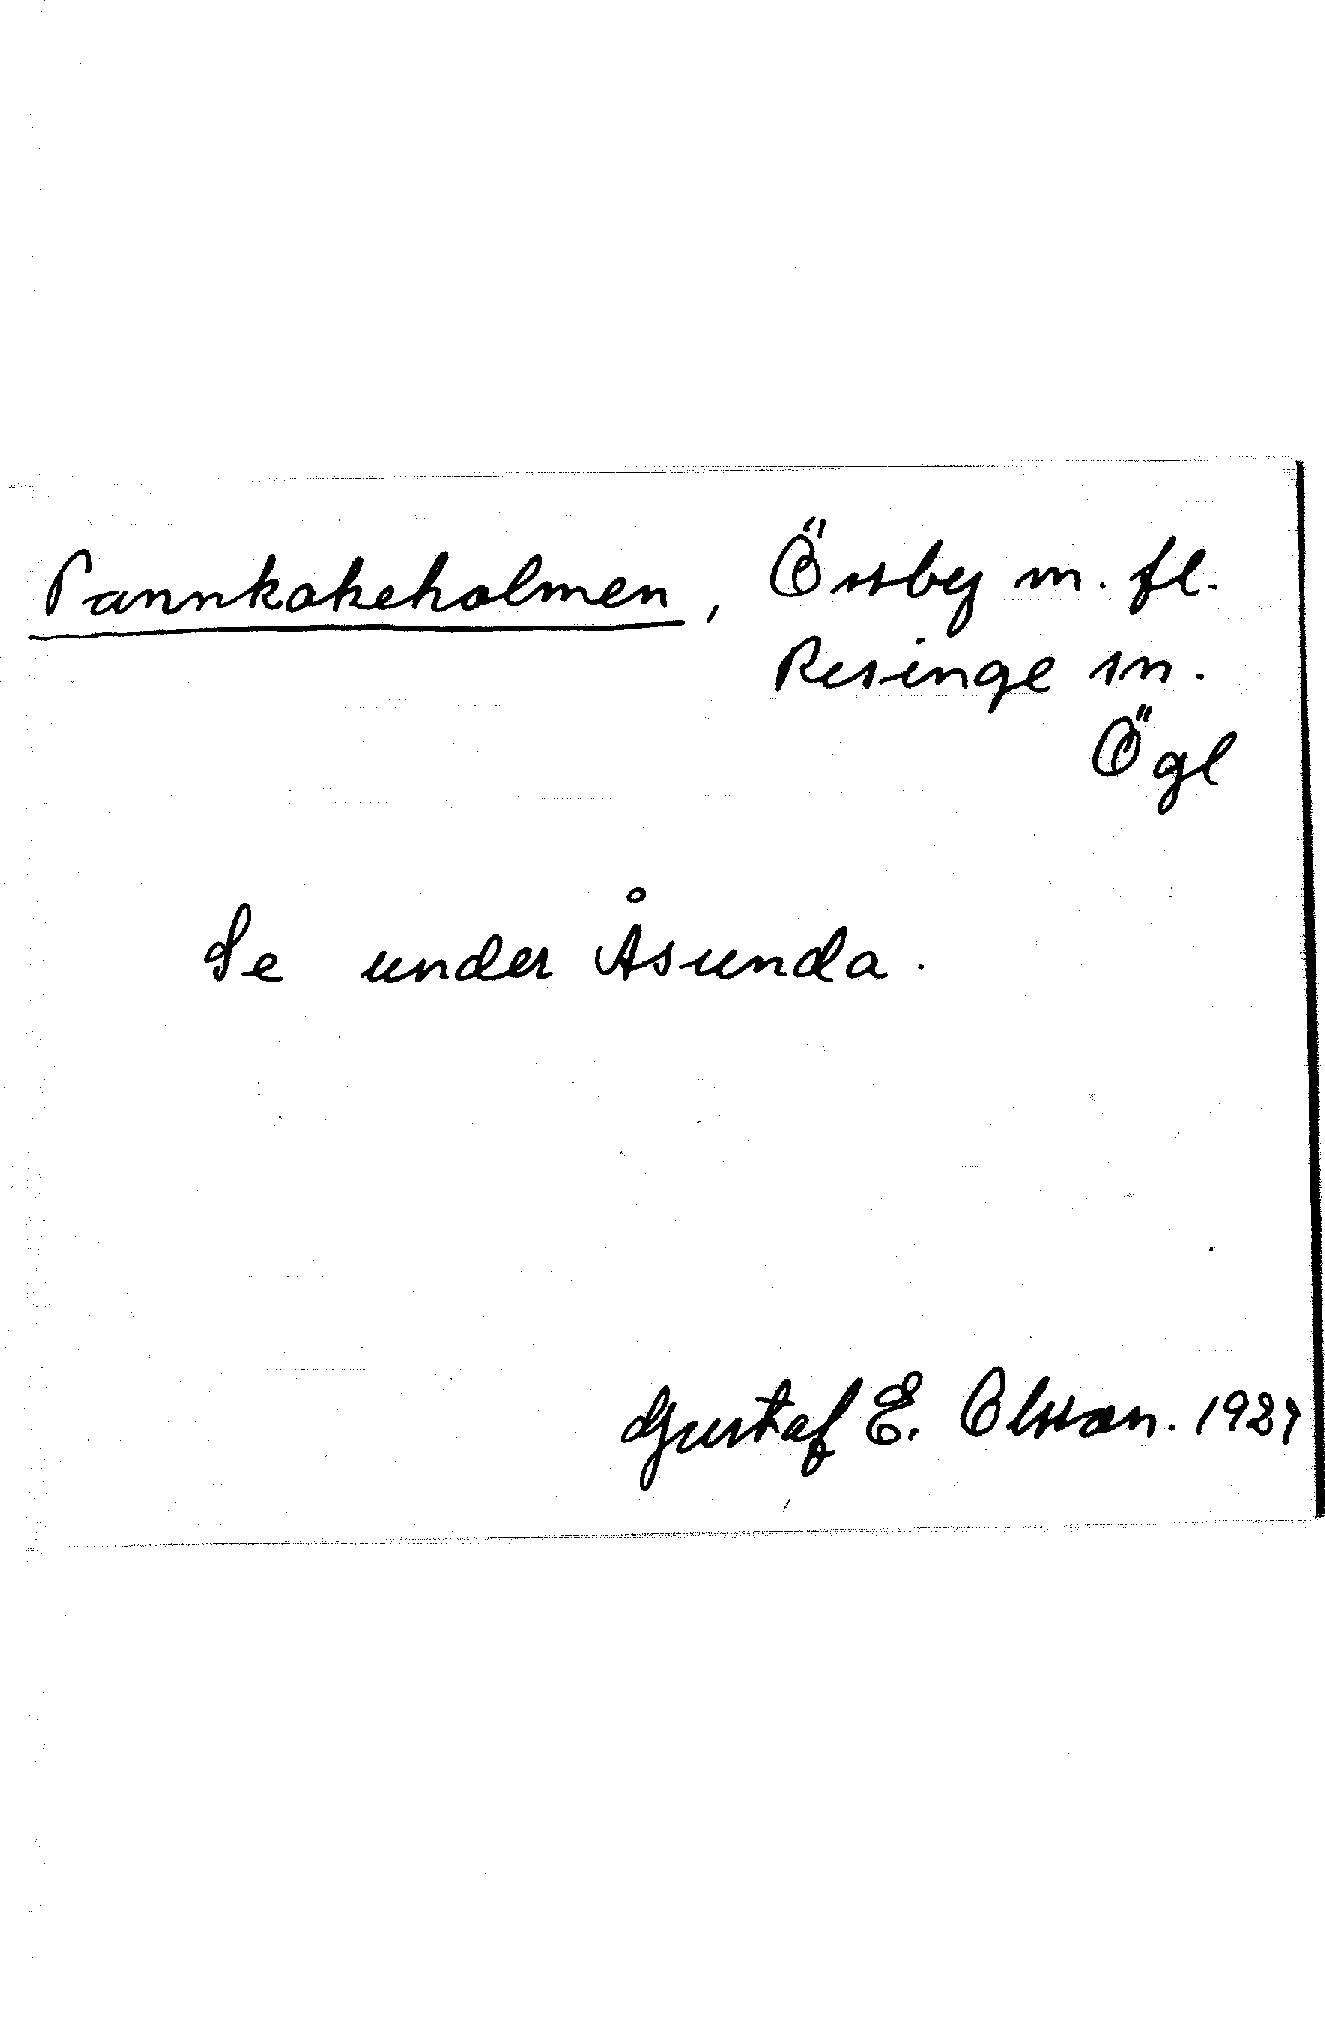 Pannkakeholmen, Össby m. fl.
Resinge sn.
Ögl
Se under Åsunda.
Gustaf E. Olsson. 1927